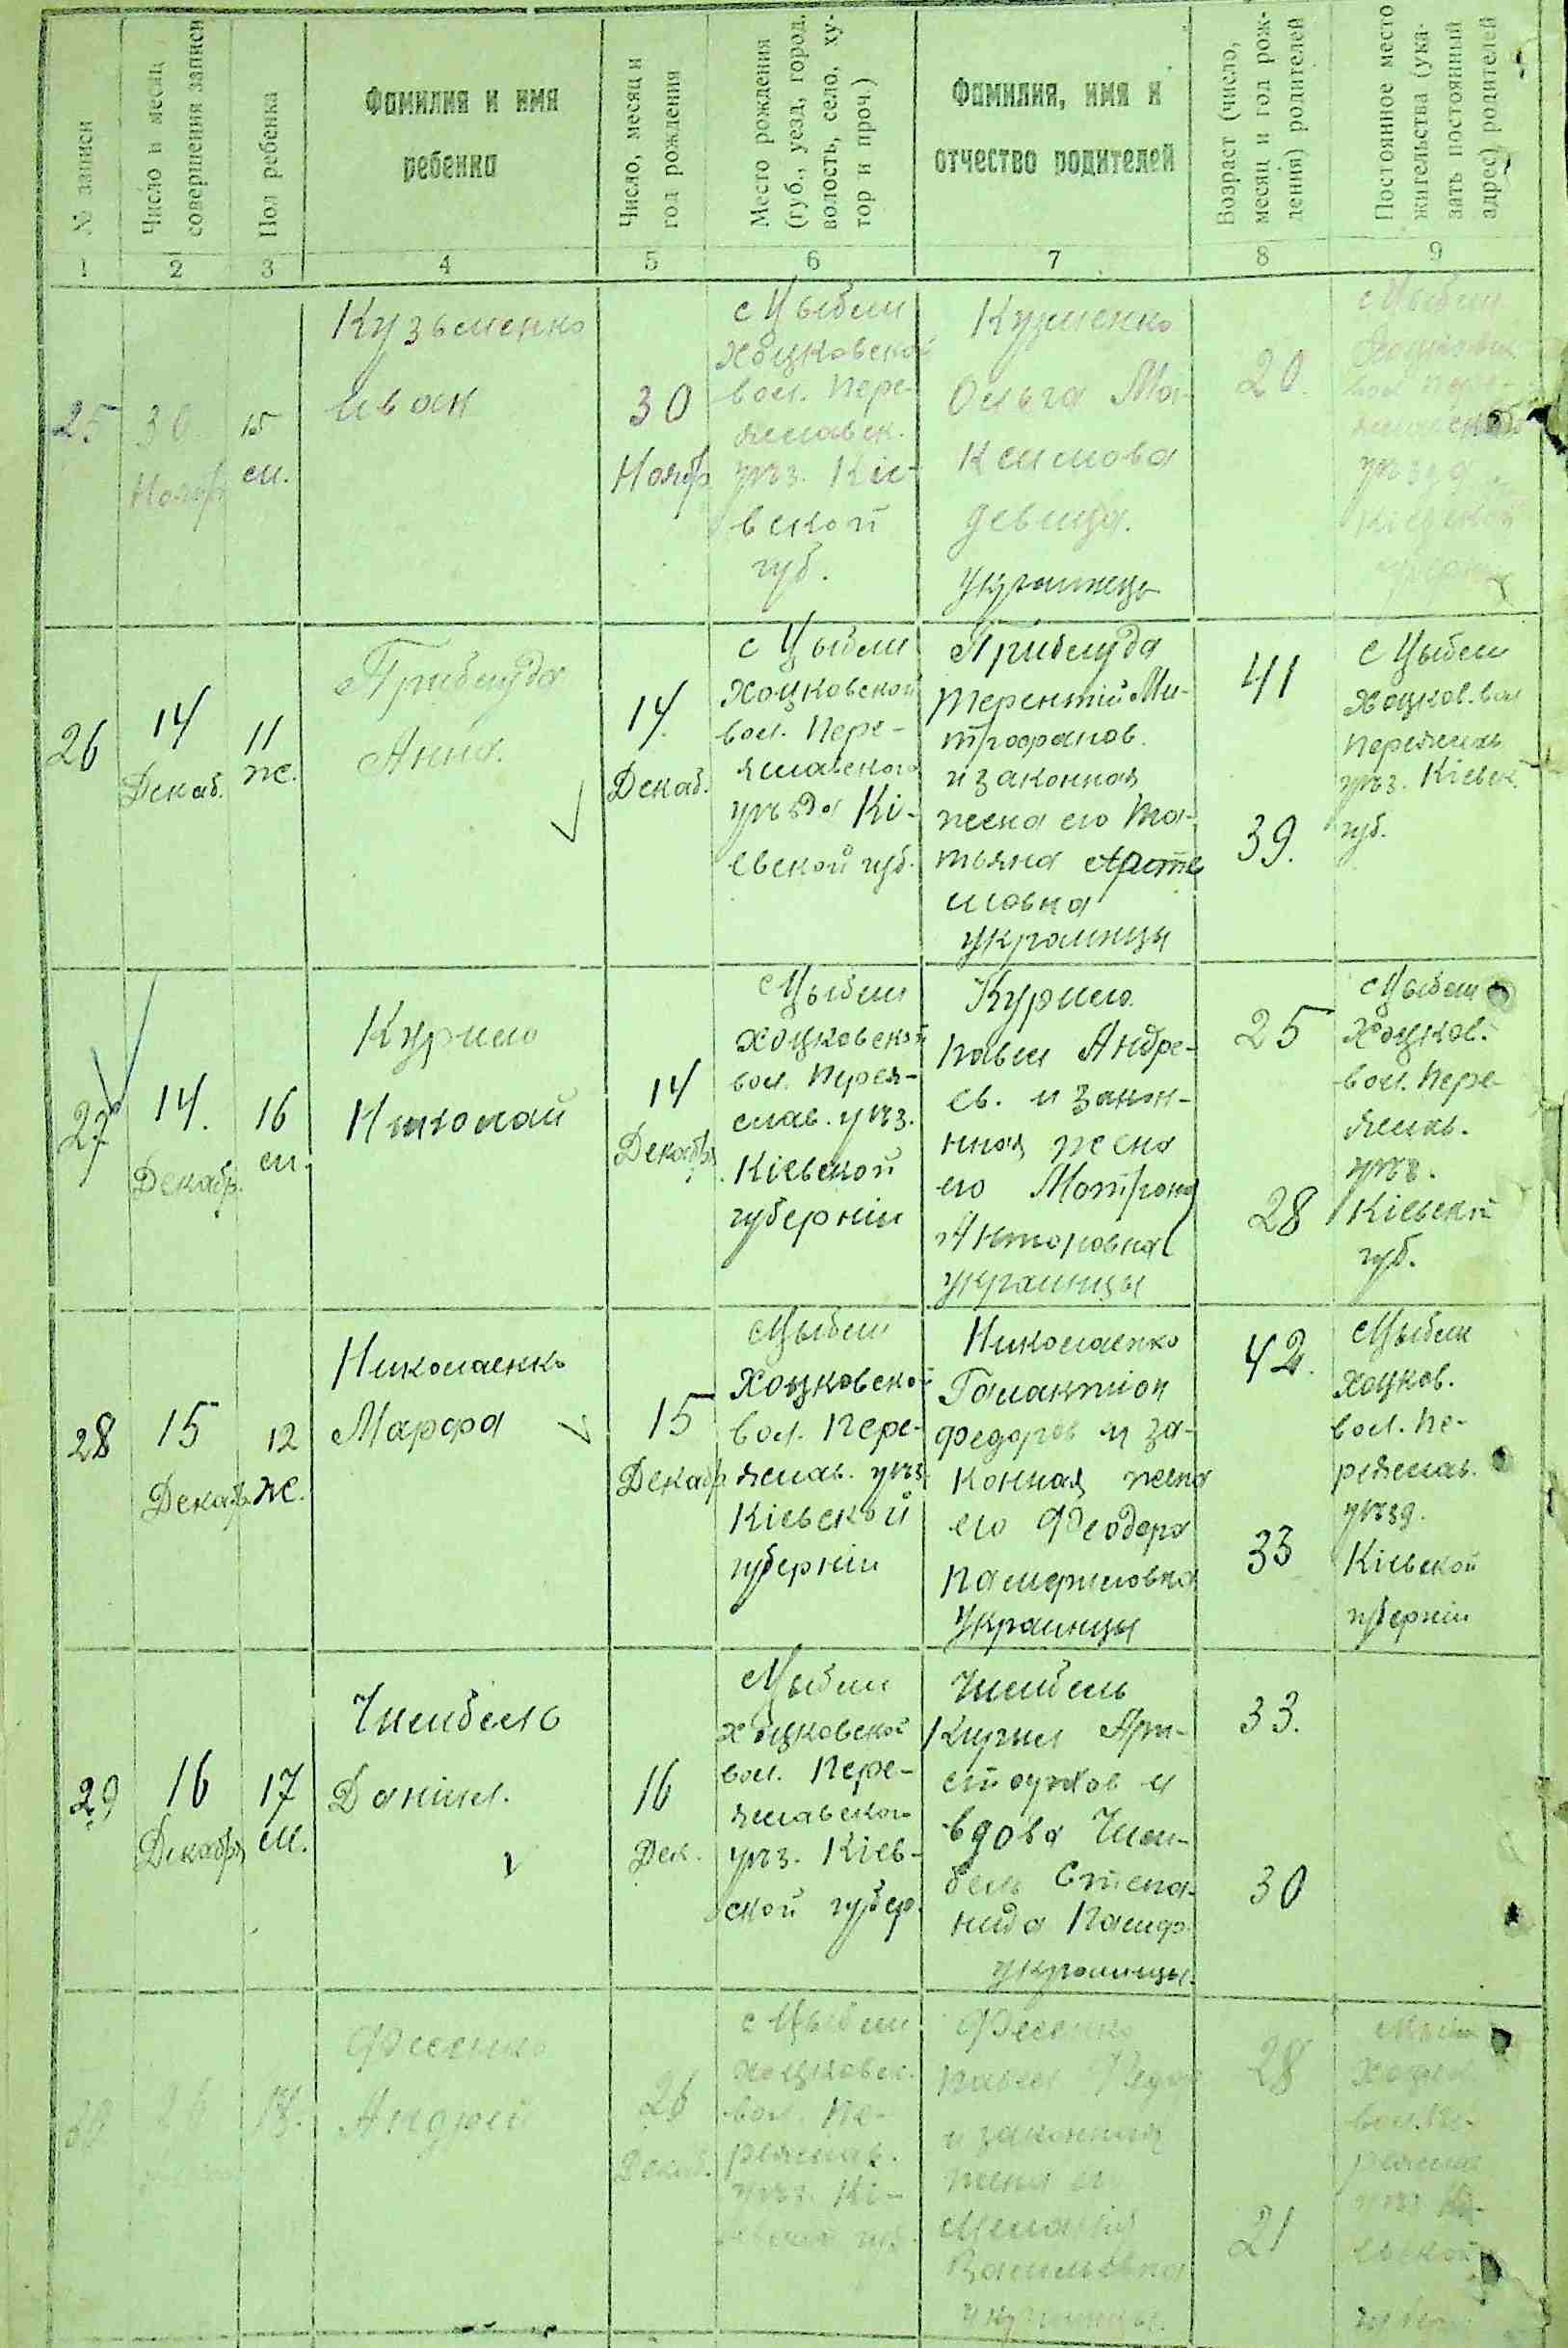 № записи
Число и месяц
совершения записи
Пол ребенка
Фамилия и имя
ребенка
Число, месяц и
год рождения
Место рождения
(губ., уезд, город,
волость, село, ху-
тор и проч.)
Фамилия, имя и
отчество родителей
Возраст (число,
месяц и год рож-
дения) родителей
Постоянное место
жительства (ука-
зать постоянный
адрес) родителей
1 2 3 4 5 6 7 8 9
25
30
Ноябр
15
м.
Кузьменко
Иван
30
Ноябр
с Цыбли
Хоцковской
вол. Пере-
яславск.
уѣз. Кіе-
вской
губ.
Кузменко
Ольга Ма-
ксимова
девица.
украинець
20.
с Цыбли
Хоцковск.
вол. Пере-
яславск
уѣзда
Кіевской
26
14
Декаб.
11
ж.
Приблуда
Анна.
14.
Декаб.
с Цыбли
Хоцковской
вол. Пере-
яславского
уѣзда Кі-
евской губ.
Приблуда
Терентій Ми-
трофанов.
и законная
жена его Та-
тьяна Арте
мовна
украинцы
41
39.
с Цыбли
Хоцков. вол
Переяслав
уѣз. Кіевск.
губ.
27
14.
Декабр.
16
м.
Курило
Николай
14
Декабря
с Цыбли
Хоцковской
вол. Перея-
слав. уѣз.
Кіевской
губерніи
Курило
Павел Андре-
ев. и закон-
ная жена
его Мотрона
украинцы
25
28
с Цыбли
Хоцков.
вол. Пере-
яслав.
уѣз.
Кіевской
губ.
28
15
Декабр.
12
ж.
Николаенко
Марфа
15
Декабр
с Цыбли
Хоцковской
вол. Пере-
яслав. уѣз.
Кіевской
губерніи
Николаенко
Галактіон
Федоров и за-
конная жена
его Феодора
Памфиловна
Украинцы
42.
33
с Цыбли
Хоцков.
вол. Пе-
реяслав.
уѣзд.
Кіевской
губерніи
29
16
Декабря
17
м.
Чмибель
Даніил.
16
Дек.
с Цыбли
Хоцковской
вол. Пере-
яславского
уѣз. Кіев-
ской губер.
Чмибель
Кирил Ари-
стархов и
вдова Чми-
бель Степа-
нида Памф.
украинцы.
33.
30
30
26
18.
Фесенко
Андрей
26
Декаб.
с Цыбли
Хоцковск.
вол. Пе-
реяслав.
уѣз. Кі-
евской губ.
Фесенко
Павел
и законная
жена его
Меланія
Васильевна
украинцы.
28
21
Хоцков
вол. Пе-
реяслав
уѣз. Кі-
евской